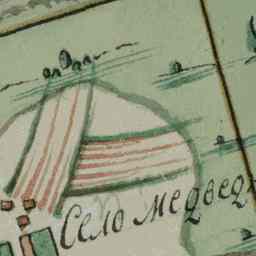 Село Медвед